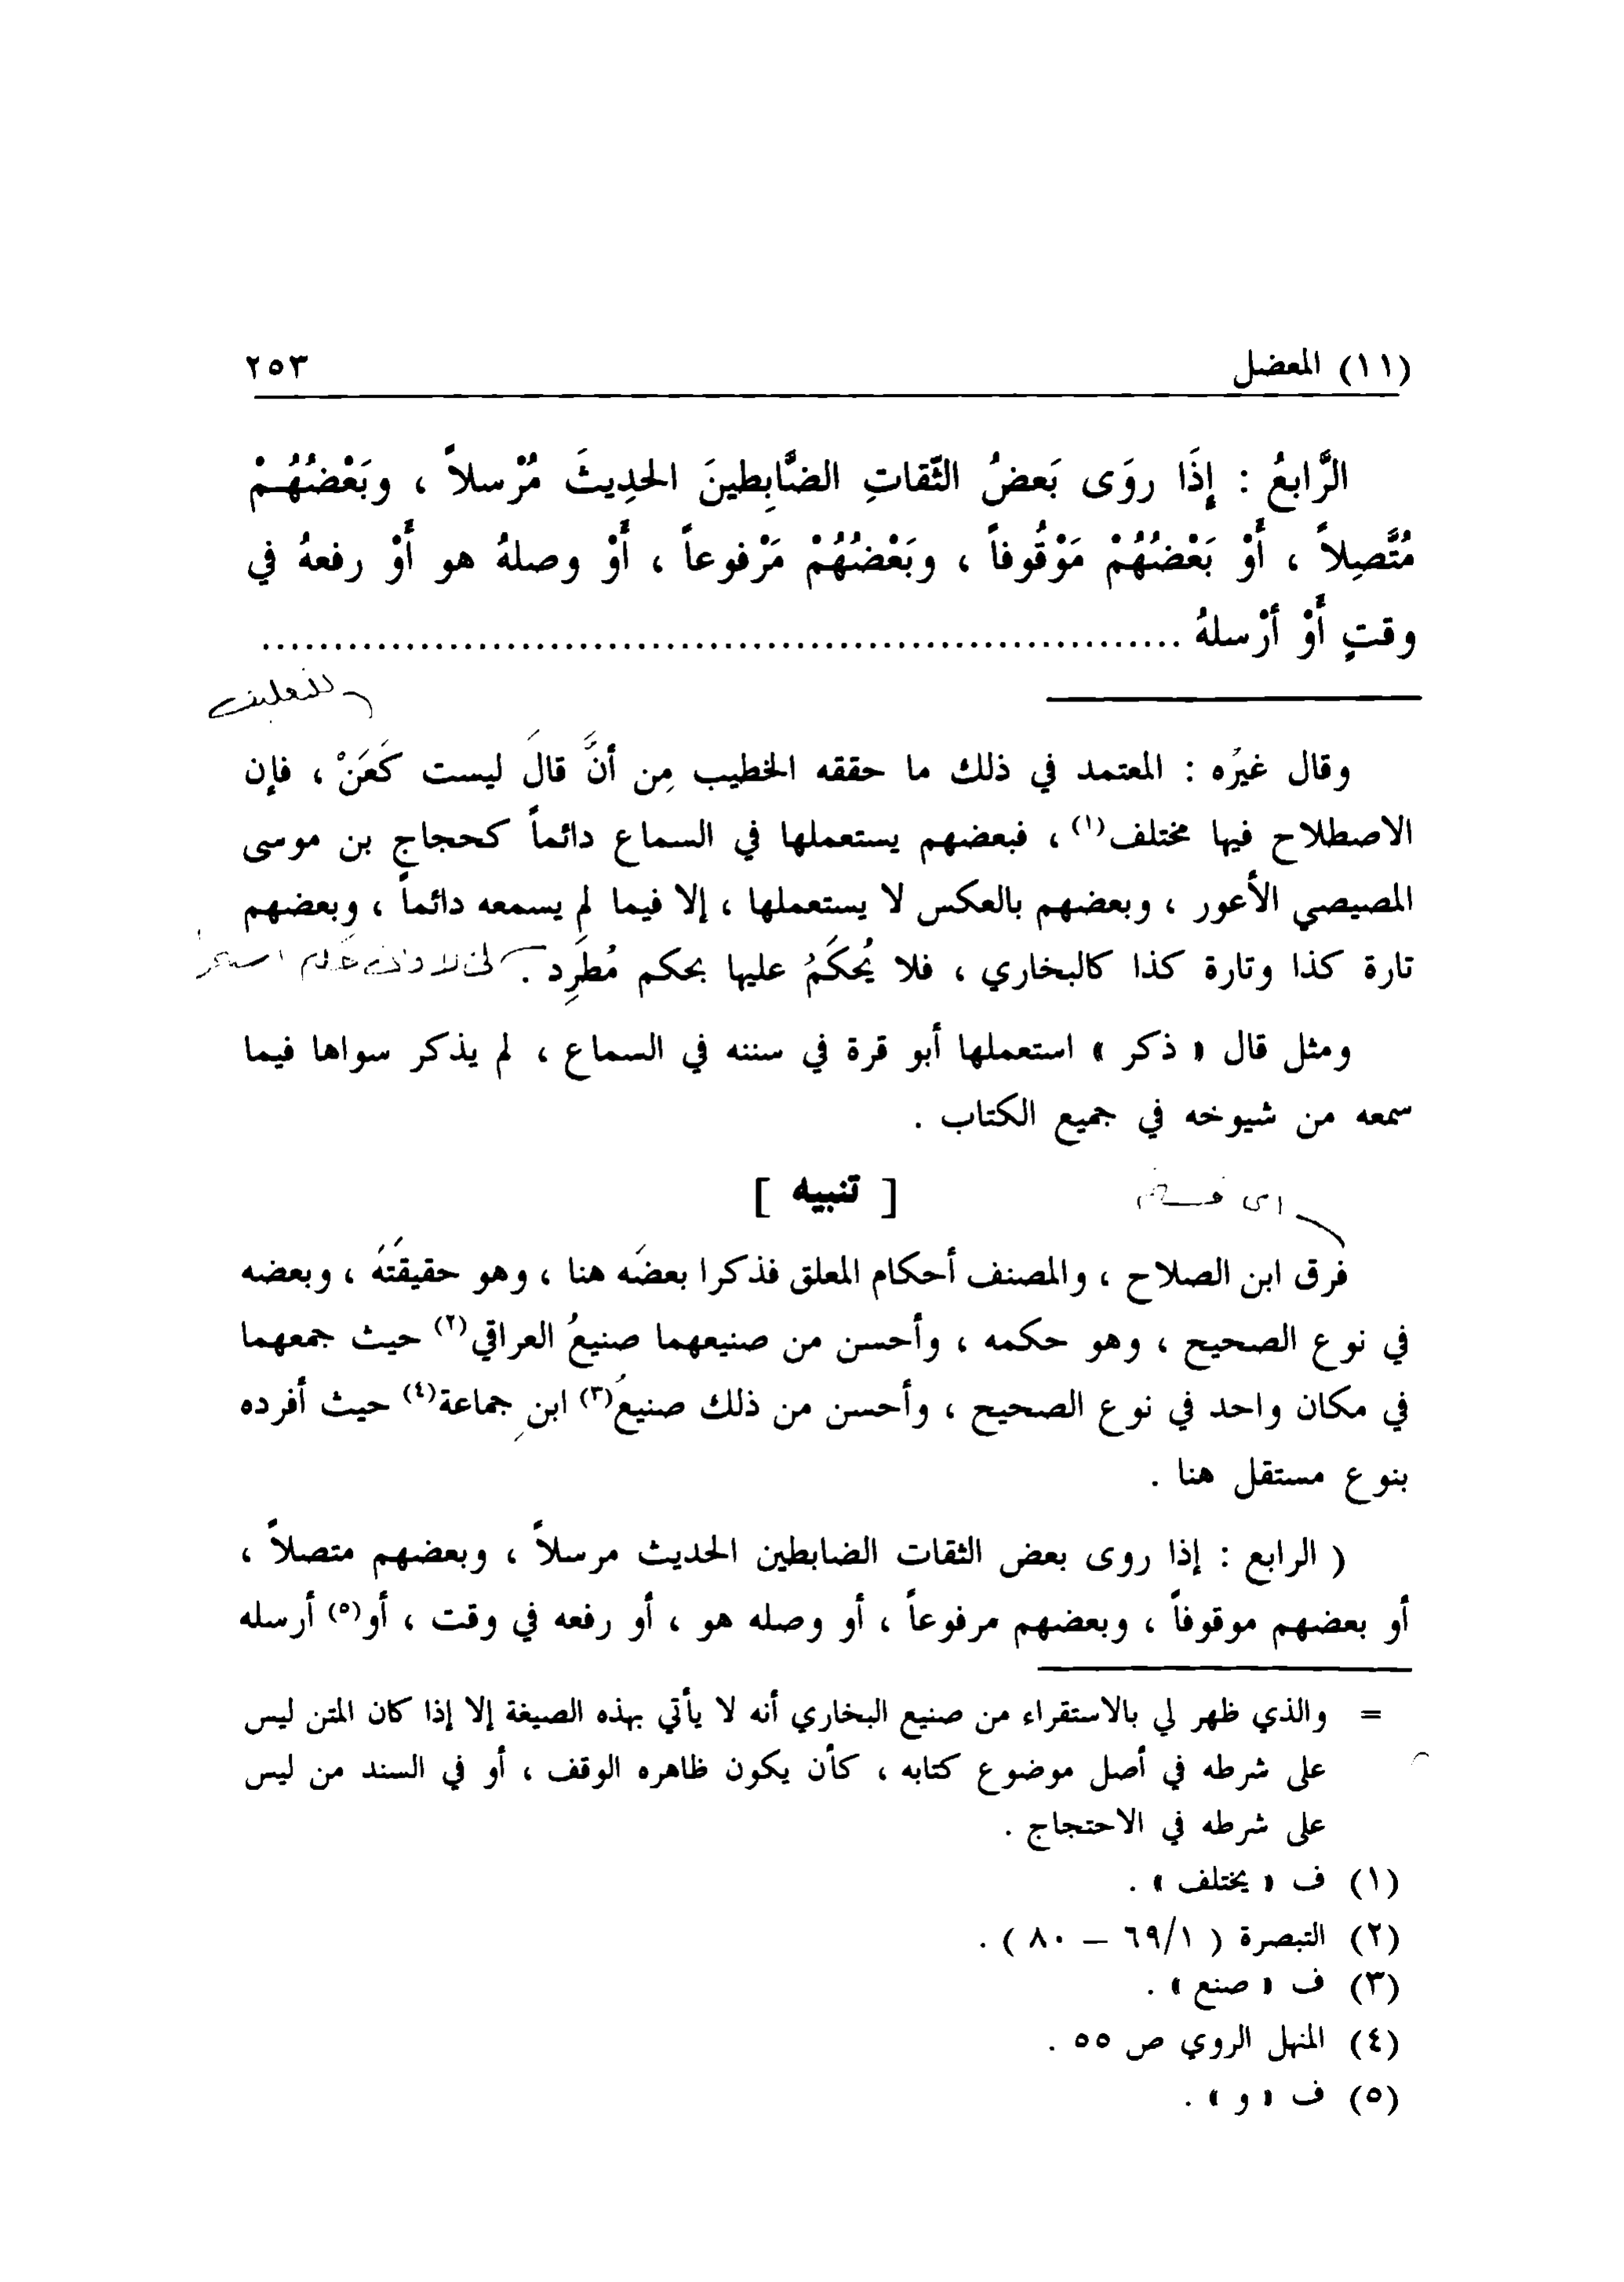 (١١) المعضل ٢٥٣
الرَّابعُ : إِذَا روَى بَعضُ الثّقاتِ الضَّابِطينَ الحَدِيثَ مُرْسلاً ، وبَعْضُهُمْ
مُتَّصِلاً ، أَوْ بَعْضُهُمْ مَوْقُوفاً ، وبَعْضُهُمْ مَرْفوعاً ، أَوْ وصلهُ هو أَوْ رفعهُ في
وقتٍ أَوْ أرْسلهُ ................................................................
وقال غيرُه : المعتمد في ذلك ما حققه الخطيب مِن أنَّ قالَ ليست كَعَنْ ، فإن
الاصطلاح فيها مختلف(١) ، فبعضهم يستعملها في السماع دائماً كحجاج بن موسى
المصيصي الأعور ، وبعضهم بالعكس لا يستعملها ، إلا فيما لم يسمعه دائماً ، وبعضهم
تارة كذا وتارة كذا كالبخاري ، فلا يُحكَمُ عليها بحكم مُطَرِد .
ومثل قال « ذكر » استعملها أبو قرة في سننه في السماع ، لم يذكر سواها فيما
سمعه من شيوخه في جميع الكتاب .
[ تنبيه ]
فرق ابن الصلاح ، والمصنف أحكام المعلق فذكرا بعضَه هنا ، وهو حقيقَتَهُ ، وبعضه
في نوع الصحيح ، وهو حكمه ، وأحسن من صنيعهما صنيعُ العراقي(٢) حيث جمعهما
في مكان واحد في نوع الصحيح ، وأحسن من ذلك صنيعُ(٣) ابنِ جماعة(٤) حيث أفرده
بنوع مستقل هنا .
( الرابع : إذا روى بعض الثقات الضابطين الحديث مرسلاً ، وبعضهم متصلاً ،
أو بعضهم موقوفاً ، وبعضهم مرفوعاً ، أو وصله هو ، أو رفعه في وقت ، أو(٥) أرسله
= والذي ظهر لي بالاستقراء من صنيع البخاري أنه لا يأتي بهذه الصيغة إلا إذا كان المتن ليس
على شرطه في أصل موضوع كتابه ، كأن يكون ظاهره الوقف ، أو في السند من ليس
على شرطه في الاحتجاج .
(١) ف « يختلف » .
(٢) التبصرة ( ٦٩/١ – ٨٠ ) .
(٣) ف « صنع » .
(٤) المنهل الروي ص ٥٥ .
(٥) ف « و » .